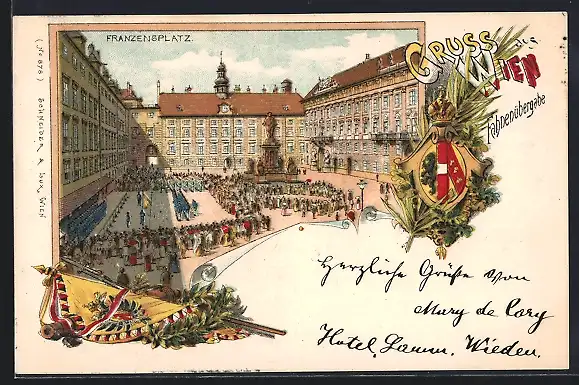 FRANZENSPLATZ.
GRUSS aus
WIEN
Fahnenübergabe
(No 676) SCHNEIDER & LUX, WIEN
Herzliche Grüße von
Mary de Cary
Hotel Lamm. Wieden.